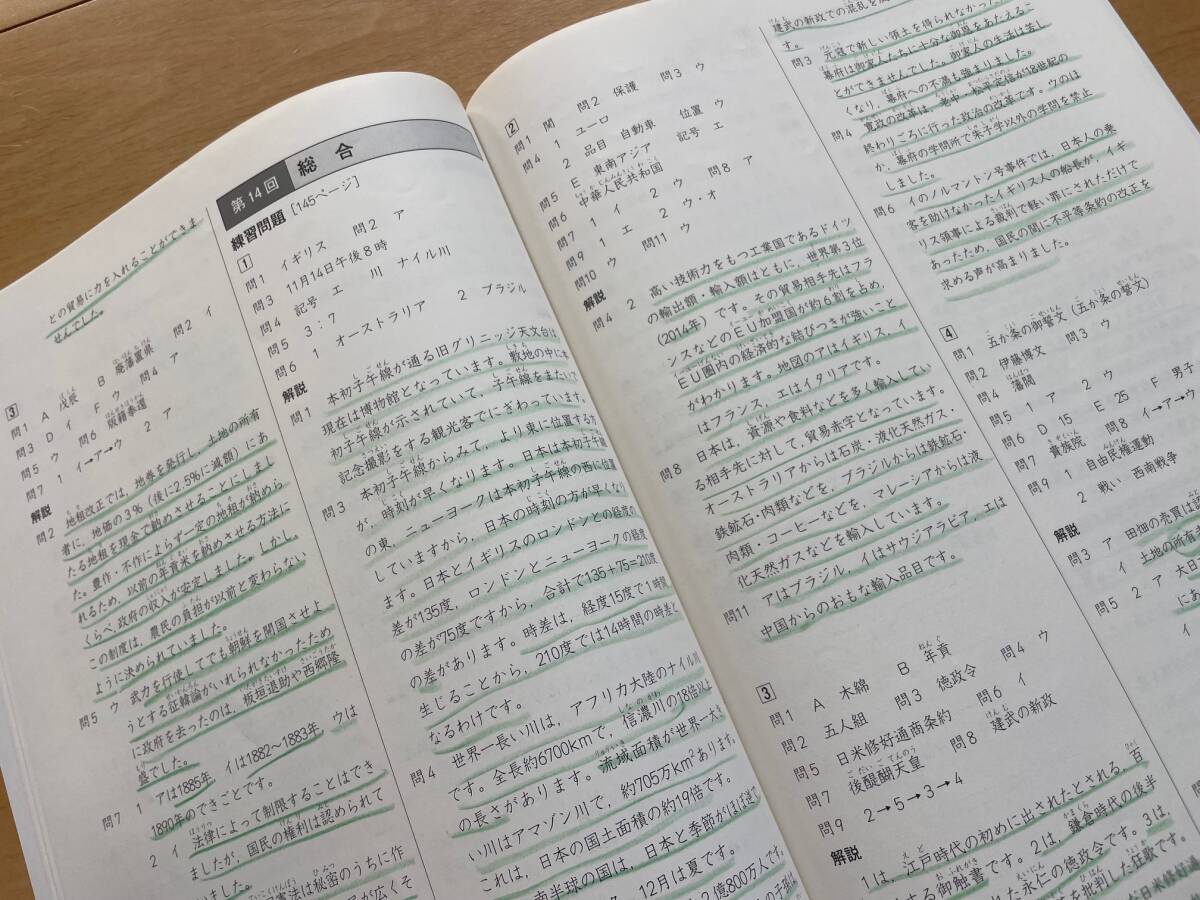 との貿易に力を入れることができま
せんでした。
3
問1 A 戊辰 B 廃藩置県 問2 イ
問3 D イ F ウ 問4 ア
問5 ウ 問6 版籍奉還
問7 1 イ→ア→ウ 2 ア
解説
問2 地租改正では，地券を発行し，土地の所有
者に，地価の3％（後に2.5％に減額）にあ
たる地租を現金で納めさせることにしまし
た。豊作・不作によらず一定の地租が納めら
れるため，以前の年貢米を納めさせる方法に
くらべ，政府の収入が安定しました。しかし，
この制度は，農民の負担が以前と変わらない
ように決められていました。
問5 ウ 武力を行使してでも朝鮮を開国させよ
うとする征韓論がいれられなかったため
に政府を去ったのは，板垣退助や西郷隆
盛でした。
問7 1 アは1885年，イは1882〜1883年，ウは
1890年のできごとです。
2 イ 法律によって制限することはでき
ましたが，国民の権利は認められて
いました。
憲法は秘密のうちに作
第14回 総合
練習問題［145ページ］
1
問1 イギリス 問2 ア
問3 11月14日午後8時
問4 記号 エ 川 ナイル川
問5 3：7
問6 1 オーストラリア 2 ブラジル
解説
問1 本初子午線が通る旧グリニッジ天文台は，
現在は博物館となっています。敷地の中に本
初子午線が示されていて，子午線をまたいで
記念撮影をする観光客でにぎわっています。
問3 本初子午線からみて，より東に位置する方
が，時刻が早くなります。日本は本初子午線
の東，ニューヨークは本初子午線の西に位置
していますから，日本の時刻の方が早くなり
ます。日本とイギリスのロンドンとの経度の
差が135度，ロンドンとニューヨークの経度
の差が75度ですから，合計で135＋75＝210度
の差があります。時差は，経度15度で1時間
生じることから，210度では14時間の時差と
なるわけです。
問4 世界一長い川は，アフリカ大陸のナイル川
です。全長約6700kmで，信濃川の18倍以上
の長さがあります。流域面積が世界一大き
い川はアマゾン川で，約705万km²あります。
これは，日本の国土面積の約19倍です。
南半球の国は，日本と季節がほぼ逆で
12月は夏です。
2億800万人です。
2
問1 関 問2 保護 問3 ウ
問4 1 ユーロ
2 品目 自動車 位置 ウ
問5 E 東南アジア 記号 エ
問6 中華人民共和国
問7 1 イ 2 ウ 問8 ア
問9 1 エ 2 ウ・オ
問10 ウ 問11 ウ
解説
問4 2 高い技術力をもつ工業国であるドイツ
の輸出額・輸入額はともに，世界第3位
（2014年）です。その貿易相手先はフラ
ンスなどのEU加盟国が約6割を占め，
EU圏内の経済的な結びつきが強いこと
がわかります。地図のアはイギリス，イ
はフランス，エはイタリアです。
問8 日本は，資源や食料などを多く輸入してい
る相手先に対して，貿易赤字となっています。
オーストラリアからは石炭・液化天然ガス・
鉄鉱石・肉類などを，ブラジルからは鉄鉱石・
肉類・コーヒーなどを，マレーシアからは液
化天然ガスなどを輸入しています。
問11 アはブラジル，イはサウジアラビア，エは
中国からのおもな輸入品目です。
3
問1 A 木綿 B 年貢
問2 五人組 問3 徳政令 問4 ウ
問5 日米修好通商条約 問6 イ
問7 後醍醐天皇 問8 建武の新政
問9 2→5→3→4
解説
1は，江戸時代の初めに出されたとされる，百
する御触書です。2は，鎌倉時代の後半
れた永仁の徳政令です。3は，
を批判した狂歌です。
建武の新政での混乱を
す。
問3 元寇で新しい領土を得られなかった
幕府は御家人たちに十分な御恩をあたえるこ
とができませんでした。御家人の生活は苦し
くなり，幕府への不満も強まりました。
問4 寛政の改革は，老中・松平定信が18世紀の
終わりごろに行った政治の改革です。ウのほ
か，幕府の学問所で朱子学以外の学問を禁止
しました。
問6 イのノルマントン号事件では，日本人の乗
客を助けなかったイギリス人の船長が，イギ
リス領事による裁判で軽い罪にされただけで
あったため，国民の間に不平等条約の改正を
求める声が高まりました。
4
問1 五か条の御誓文（五か条の誓文）
問2 伊藤博文 問3 ウ
問4 藩閥
問5 1 ア 2 ウ
問6 D 15 E 25 F 男子
問7 貴族院 問8 イ→ア→ウ
問9 1 自由民権運動
2 戦い 西南戦争
解説
問3 ア 田畑の売買は
イ 土地の所有
問5 2 ア 大日
にあ